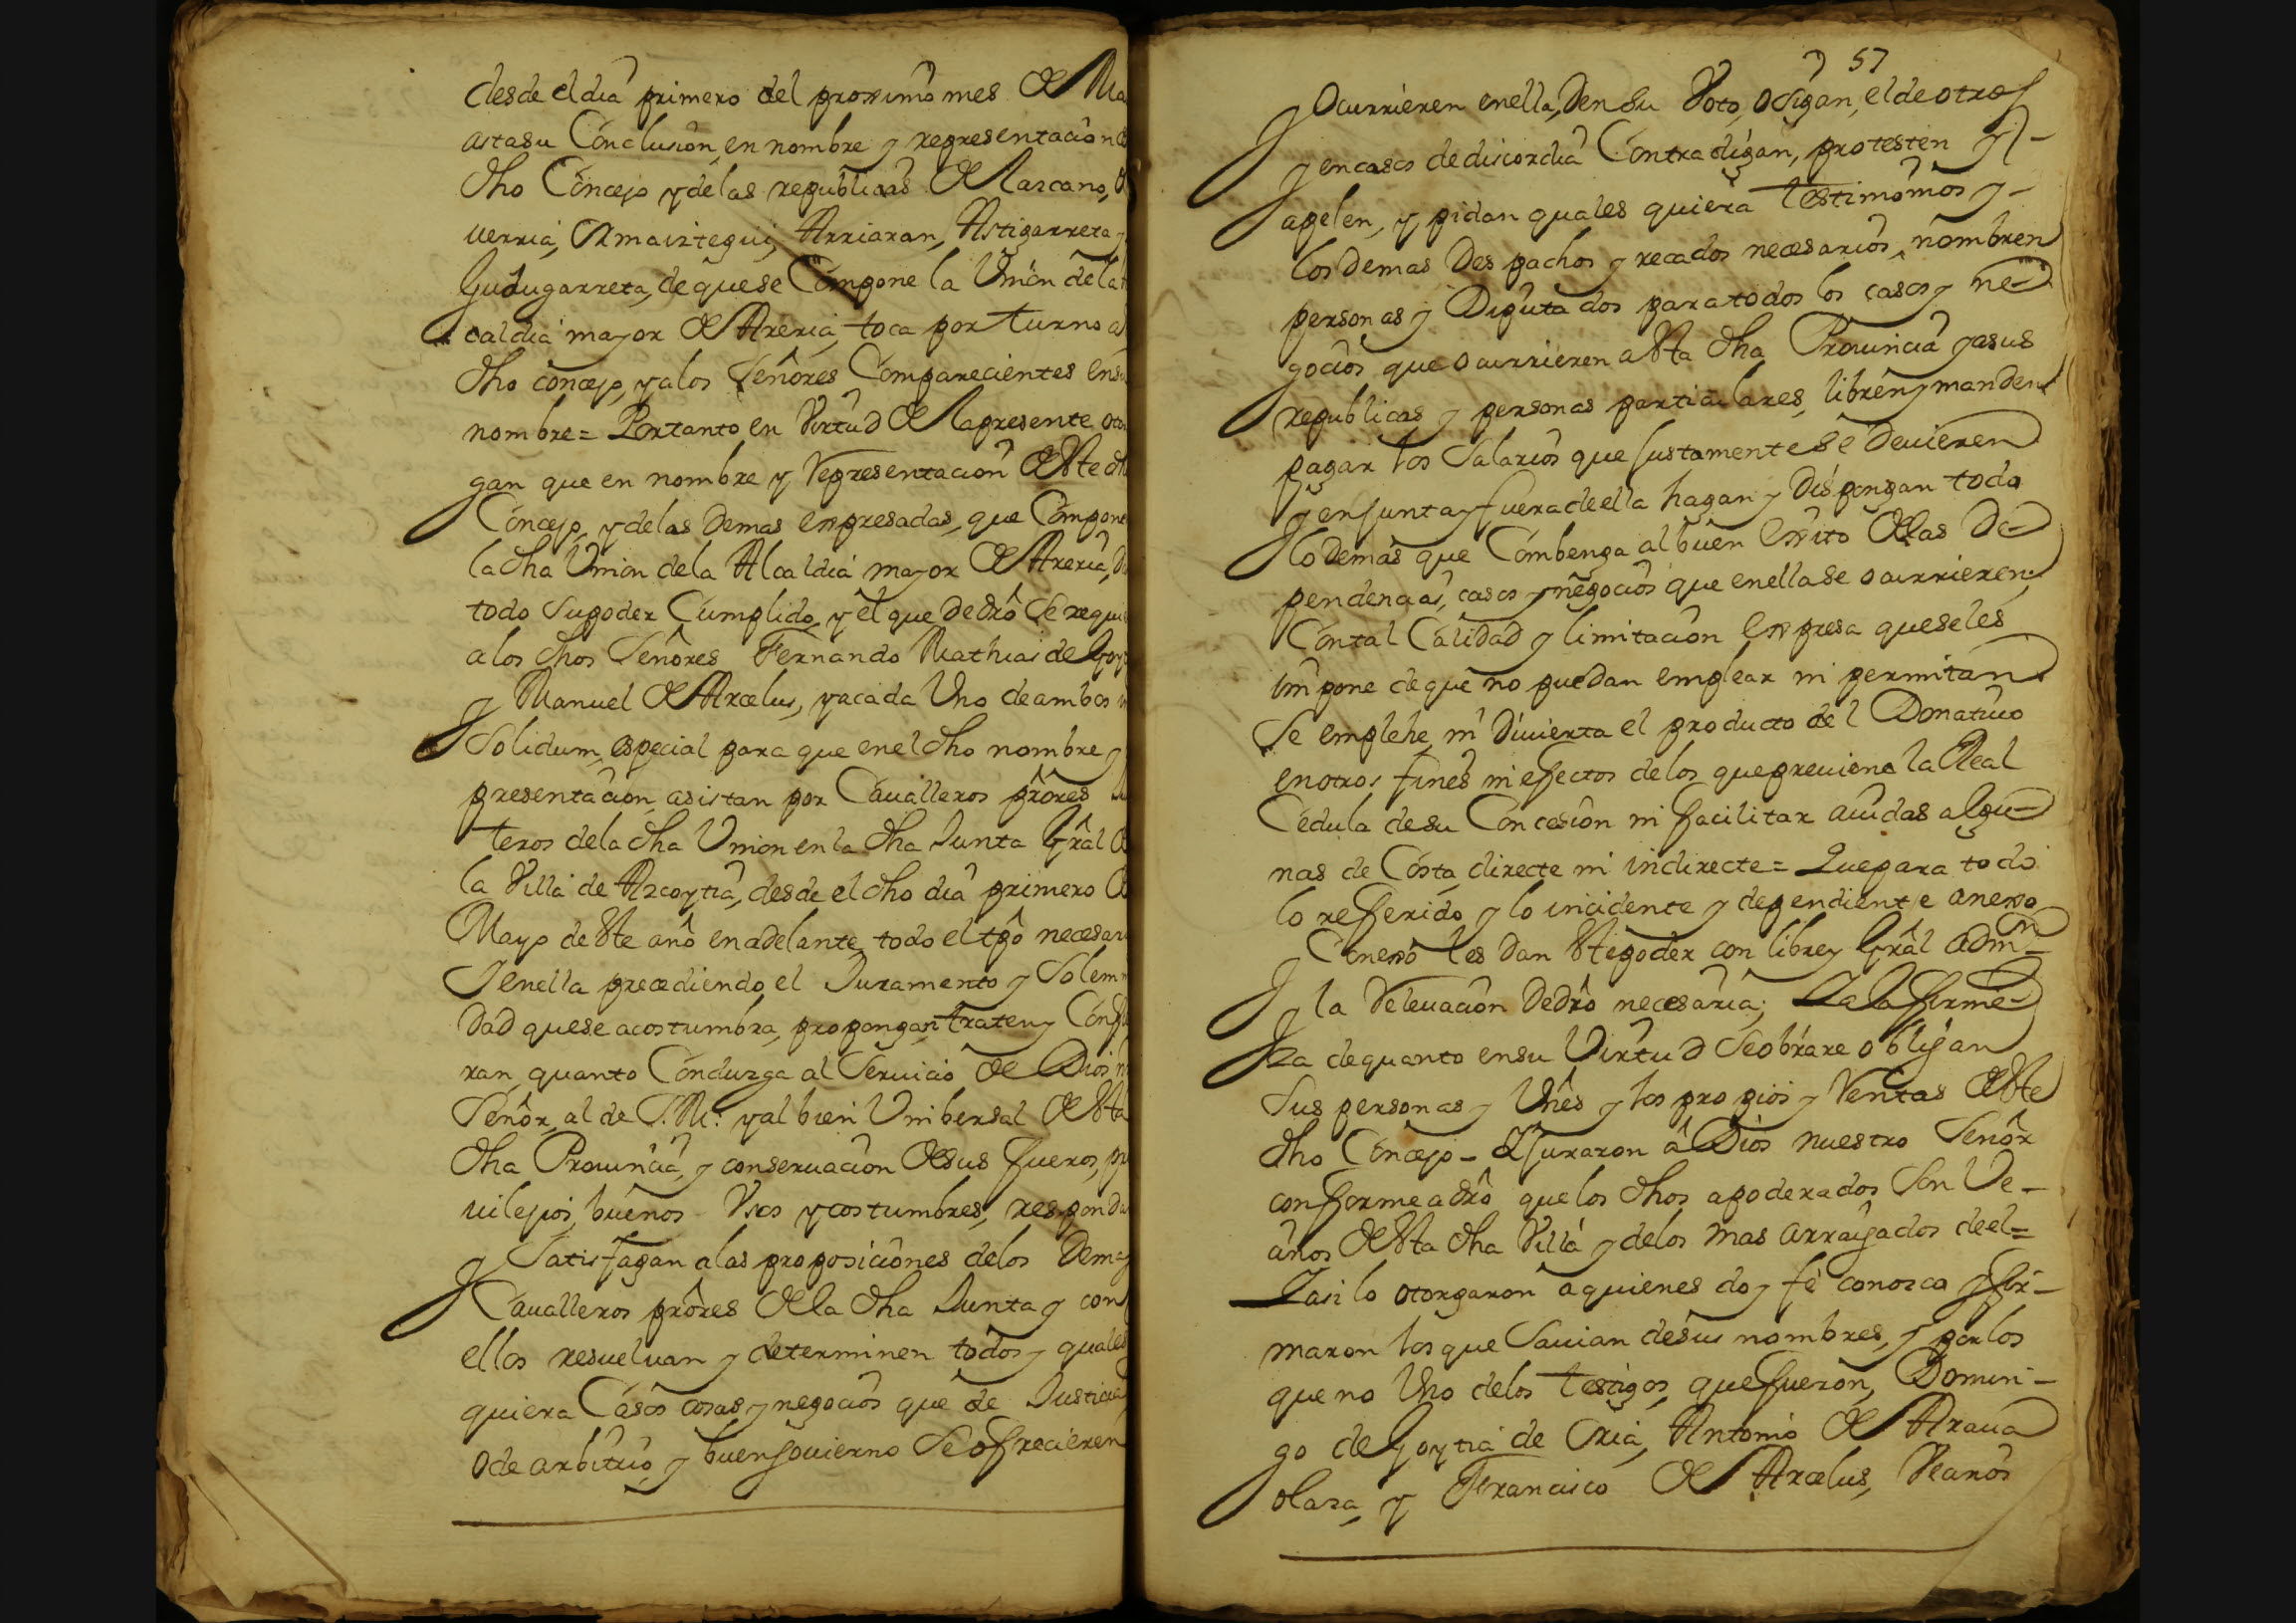 desde el dia primero del proximo mes de Ma
asta su Conclusion, en nombre y representacion
dho Concejo y de las republicas de Lazcano, O
uerria, Ymaiztegui, Arriaran, Astigarreta y
Gudugarreta, de que se Compone la Union de la
caldia mayor de Areria, toca por turno a
dho concejo, y a los Señores Comparecientes en su
nombre = Portanto en Virtud de la presente otor
gan que en nombre y Representacion de este dh
Concejo, y de las Demas expresadas, que Compone
la dha Union de la Alcaldia mayor de Areria, D
todo Su poder Cumplido, y el que de drô Se requi
a los dhos Señores Fernando Mathias de Goy
y Manuel de Arcelus, y a cada Vno de ambos in
Solidum, especial para que en el dho nombre y
presentacion, asistan por Caualleros prôres Ju
teros de la dha Union en la dha Junta Grâl de
la Villa de Azcoytia, desde el dho dia primero de
Mayo de este año en adelante, todo el tpô necesar
Y en ella precediendo, el Juramento y Solem
dad que se acostumbra, propongan, traten y Confi
ran, quanto Conduzga al Seruicio de Dios n
Señor, al de S. M. y al bien Vnibersal de esta
dha Prouincia, y conseruacion de sus fueros, pri
uilejios, buenos Vsos y costumbres, responda
y Satisfagan a las proposiciones de los Demas
Caualleros prôres de la dha Junta y con
ellos resueluan y determinen todos y quales
quiera Casos cosas y negocios que de Justicia,
O de arbitrio, y buen gouierno Se ofrecieren
57
y Ocurrieren en ella, Den Su Voto, O Sigan, el de otros
y en casos de discordia Contradigan, protesten y
apelen, y pidan quales quiera testimonios y
los Demas Despachos y recados necesarios, nombren
personas y Diputados para todos los casos y ne
gocios que ocurrieren a esta dha Prouincia y a sus
republicas y personas particulares, libren y manden
pagar los Salarios que Justamente Se Deuieren
y en Junta y fuera de ella hagan y Dispongan todo
lo Demas que Combenga al buen exito de las De
pendencias, casos y negocios que en ella se ocurrieren,
Con tal Calidad y limitacion expresa que se les
impone de que no puedan emplear ni permitan
Se emplehe, ni Diuierta el producto del Donatiuo
en otros fines ni efectos de los que preuiene la Real
Cedula de su Concesion ni facilitar auidas algu
nas de Costa directe ni indirecte = Que para todo
lo referido y lo incidente y dependiente anexo
y Conexo les Dan este poder con libre y Grâl admon
y la Releuacion De drô necesaria; Y a la firme
za de quanto en su Virtud Se obrare obligan
Sus personas y Vnês y los propios y Rentas de este
dho Concejo - Y Juraron â Dios nuestro Señor
conforme a drô que los dhos apoderados Son Ve
cinos de esta dha Villa y de los mas arraigados de el =
Y asi lo otorgaron a quienes doy fê conozco y fir
maron los que Sauian de sus nombres, y por los
que no Vno de los testigos, que fueron, Domin
go de Goytia de Oria, Antonio de Araua
olaza, y Francisco de Arcelus, Vecinos